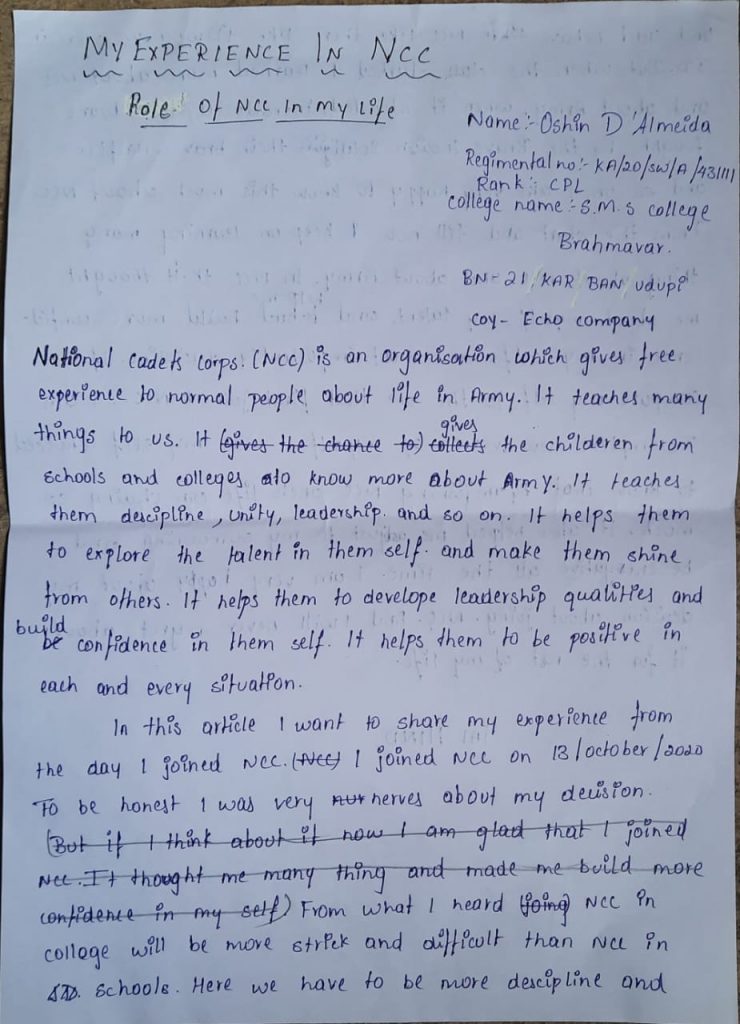 MY EXPERIENCE IN NCC
Role Of NCC In My Life
Name:- Oshin D'Almeida
Regimental no:- KA/20/SW/A/431111
Rank:- CPL
college name:- S.M.S college
Brahmavar.
BN- 21/KAR/BAN/udupi
coy- Echo company
National Cadets Corps. (NCC) is an organisation which gives free
experience to normal people about life in Army. It teaches many
gives
things to us. It (gives the chance to) collects the childeren from
schools and colleges to know more about Army. It teaches
them descipline, unity, leadership. and so on. It helps them
to explore the talent in them self. and make them shine
from others. It helps them to develope leadership qualities and
build
be confidence in them self. It helps them to be positive in
each and every situation.
In this article I want to share my experience from
the day I joined NCC. (NCC) I joined NCC on 13/october/2020
To be honest I was very nerves about my decision.
(But if I think about it now I am glad that I joined
NCC. It thought me many thing and made me build more
confidence in my self) From what I heard (joing) NCC in
college will be more strick and difficult than NCC in
schools. Here we have to be more descipline and